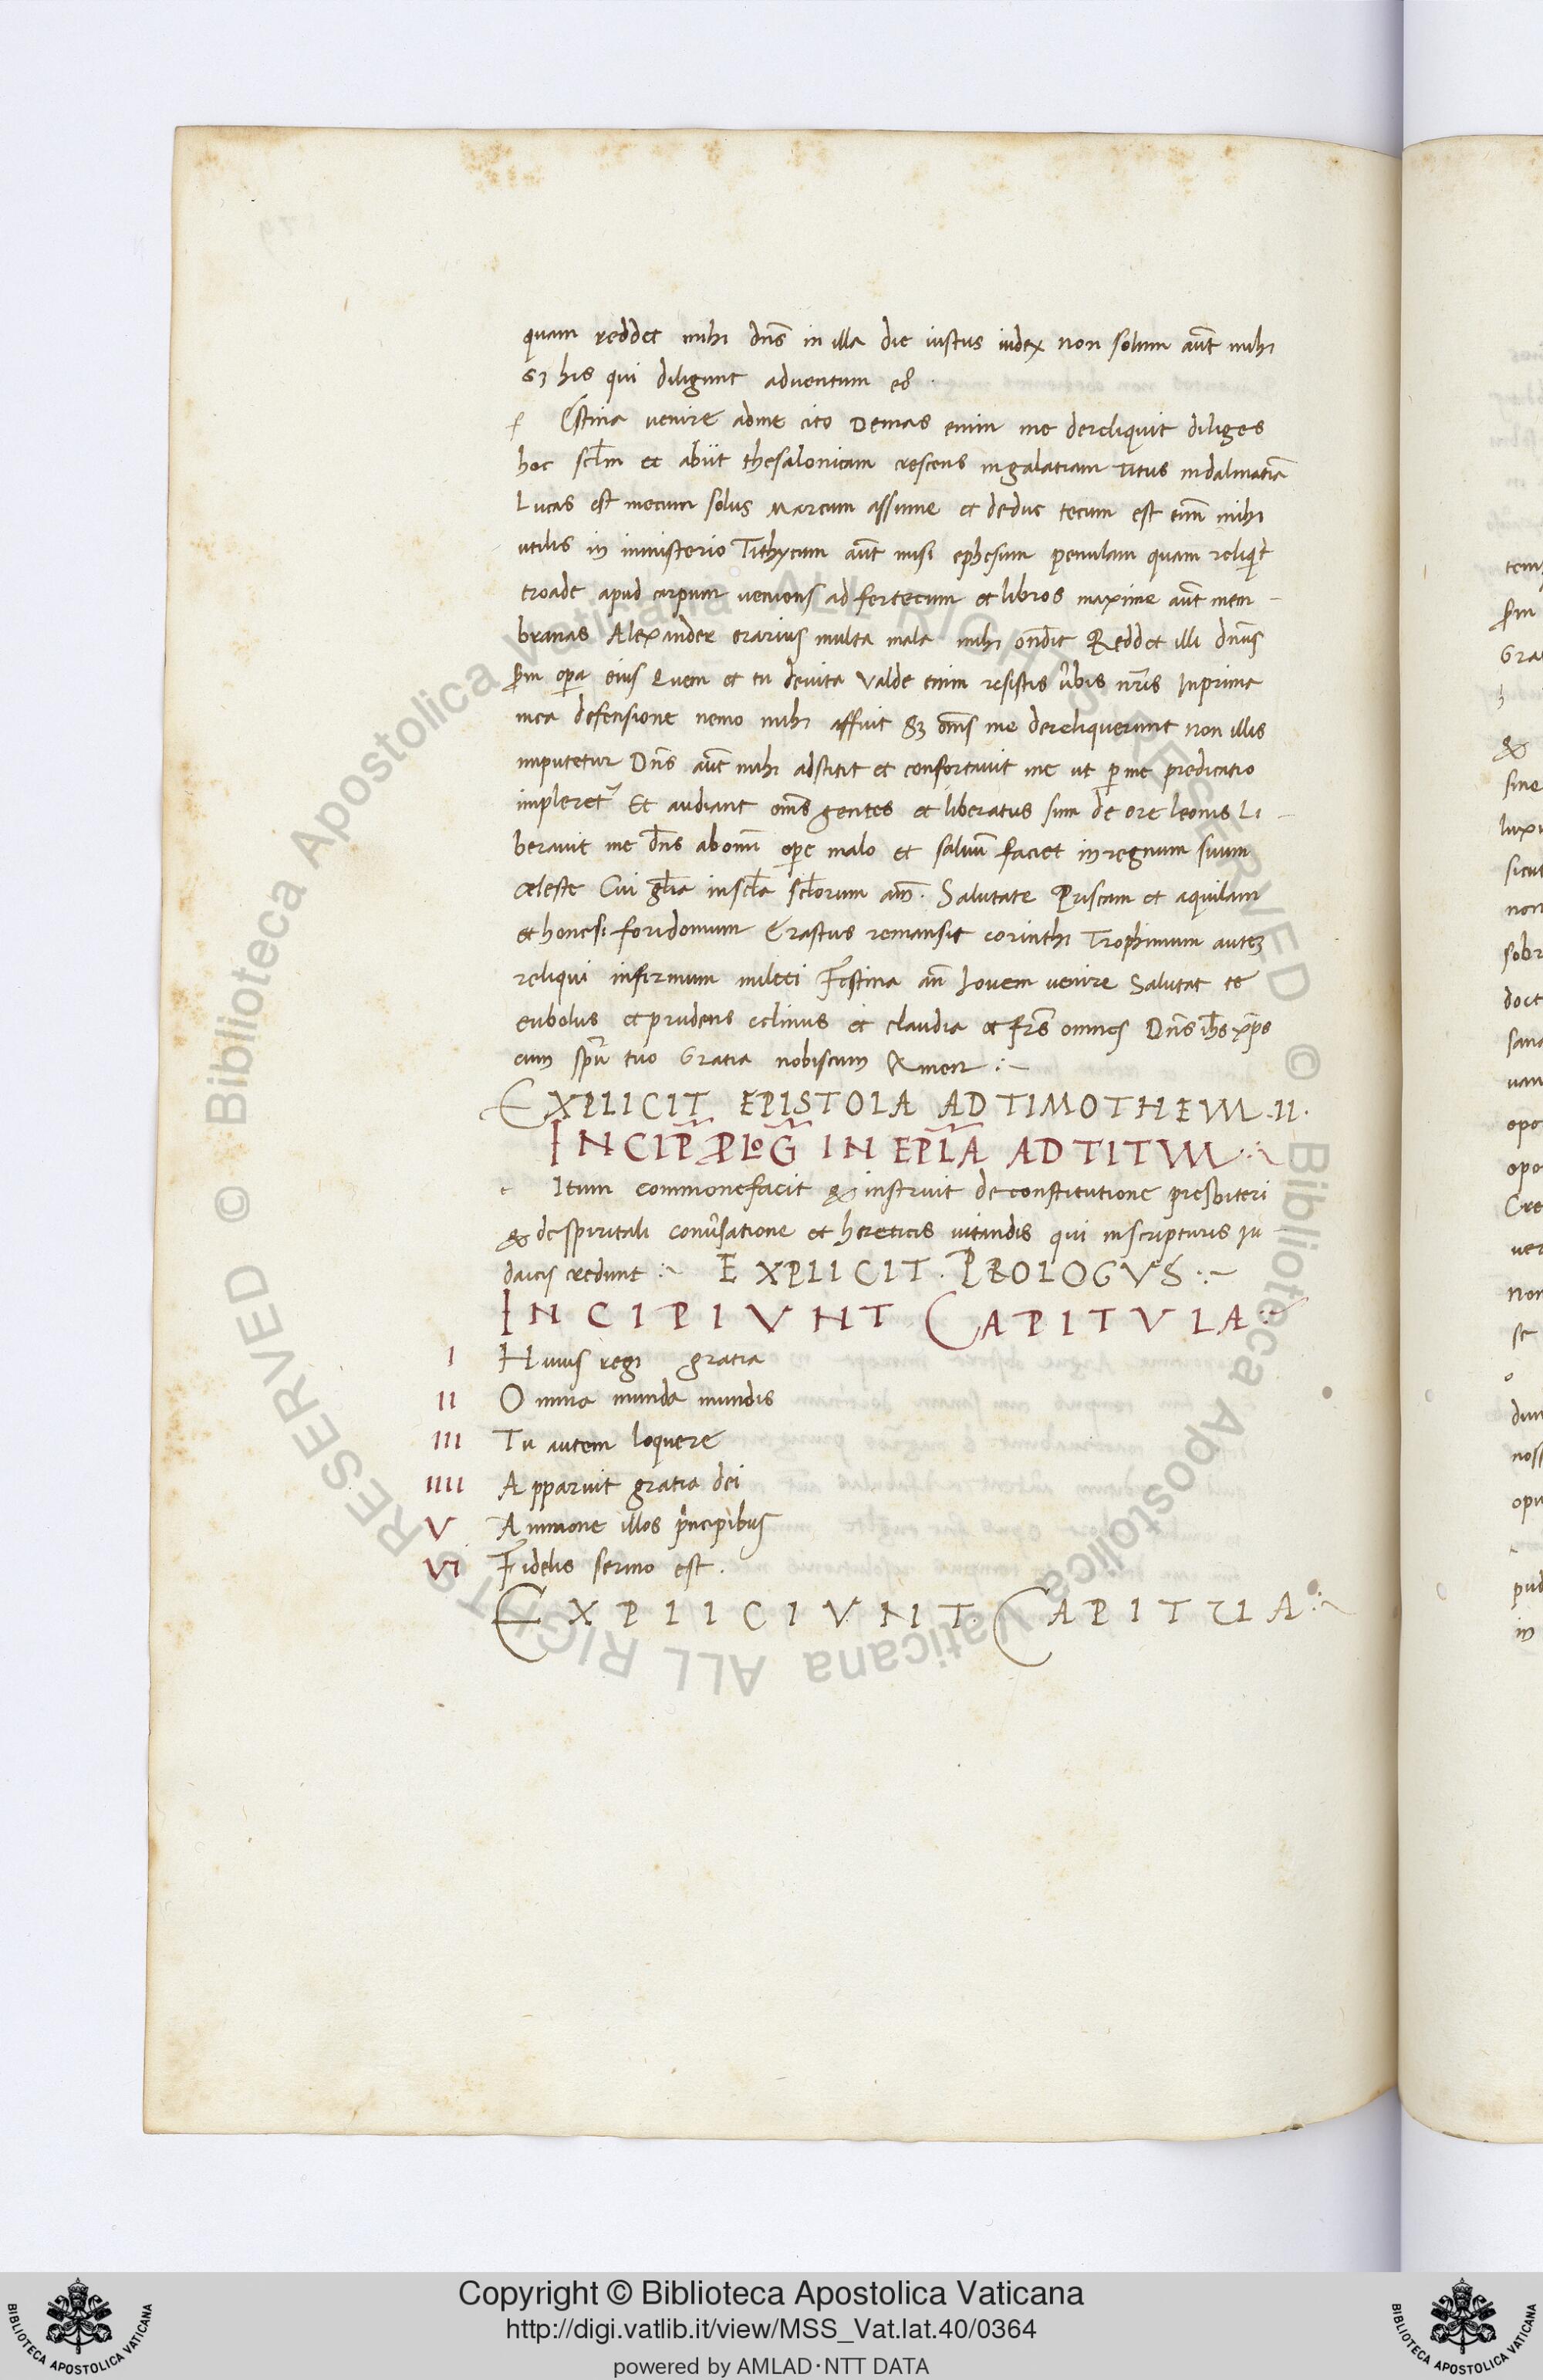 quam reddet mihi dn̄s in illa die iustus iudex non solum aūt mihi
sꝫ his qui diligunt adventum eꝰ.
f Estina venire adme cito Demas enim me dereliquit diliges
hoc sc̄lm et abiit thesalonicam crescens ingalatiam Titus indalmatiā
Lucas est mecum solus Marcum assume et deduc tecum est enī mihi
utilis in ministerio Tithycum aūt misi ephesum penulam quam reliqͥt
troade apud carpum veniens ad fertecum et libros maxime aūt mem-
branas Alexander erarius multa mala mihi ondīt Reddet illi dnūs
opa eius Quem et tu devita Valde enim resistis ūbis nr̄is Inprima
mea defensione nemo mihi affuit Sꝫ om̄s me dereliquerunt non illis
imputetur Dn̄s aūt mihi adstitit et confortavit me ut ꝑme predicatio
impleret᷑ Et audiant om̄s gentes et liberatus sum de ore leonis Li-
beravit me dn̄s abomī ope malo et salvū faciet inregnum suum
celeste Cui gl̄ia inscl̄a scl̄orum am̄. Salutate Priscam et aquilam
et honesi foridomum Erastus remansit corinthi Trophimum auteꝫ
reliqui infirmum mileti Festina an̄ hovem venire Salutat te
eubolus et prudens et linus et claudia et fr̄s omnes Dn̄s ih̄s xp̄s
cum spū tuo Gratia nobiscum Amen :~
EXPLICIT EPISTOLA AD TIMOTHEUM .II.
INCIP̄ PLOḠ IN EPLĀ AD TITUM :~
Itum commonefacit & instruit deconstitutione presbiteri
& despiritali conv̄satione et hereticis vitandis qui inscripturis iu
daicis credunt :~ EXPLICIT. PROLOGVS :~
INCIPIVNT CAPITVLA :~
I Huius regi gratia
II Omnia munda mundis
III Tu autem loquere
IIII Apparuit gratia dei
V Ammone illos pͥncipibus
VI Fidelis sermo est.
EXPLICIVNT CAPITULA :~
tem
Gra
&
sine
luxu
sicut
non
sobr
doct
sana
uam
opo
opo
Cre
ver
non
se
dum
noss
opu
pud
in
© Biblioteca Apostolica Vaticana ALL RIGHTS RESERVED © Biblioteca Apostolica Vaticana ALL RIGHTS RESERVED
Copyright © Biblioteca Apostolica Vaticana
http://digi.vatlib.it/view/MSS_Vat.lat.40/0364
powered by AMLAD·NTT DATA
BIBLIOTECA APOSTOLICA VATICANA
BIBLIOTECA APOSTOLICA VATICANA